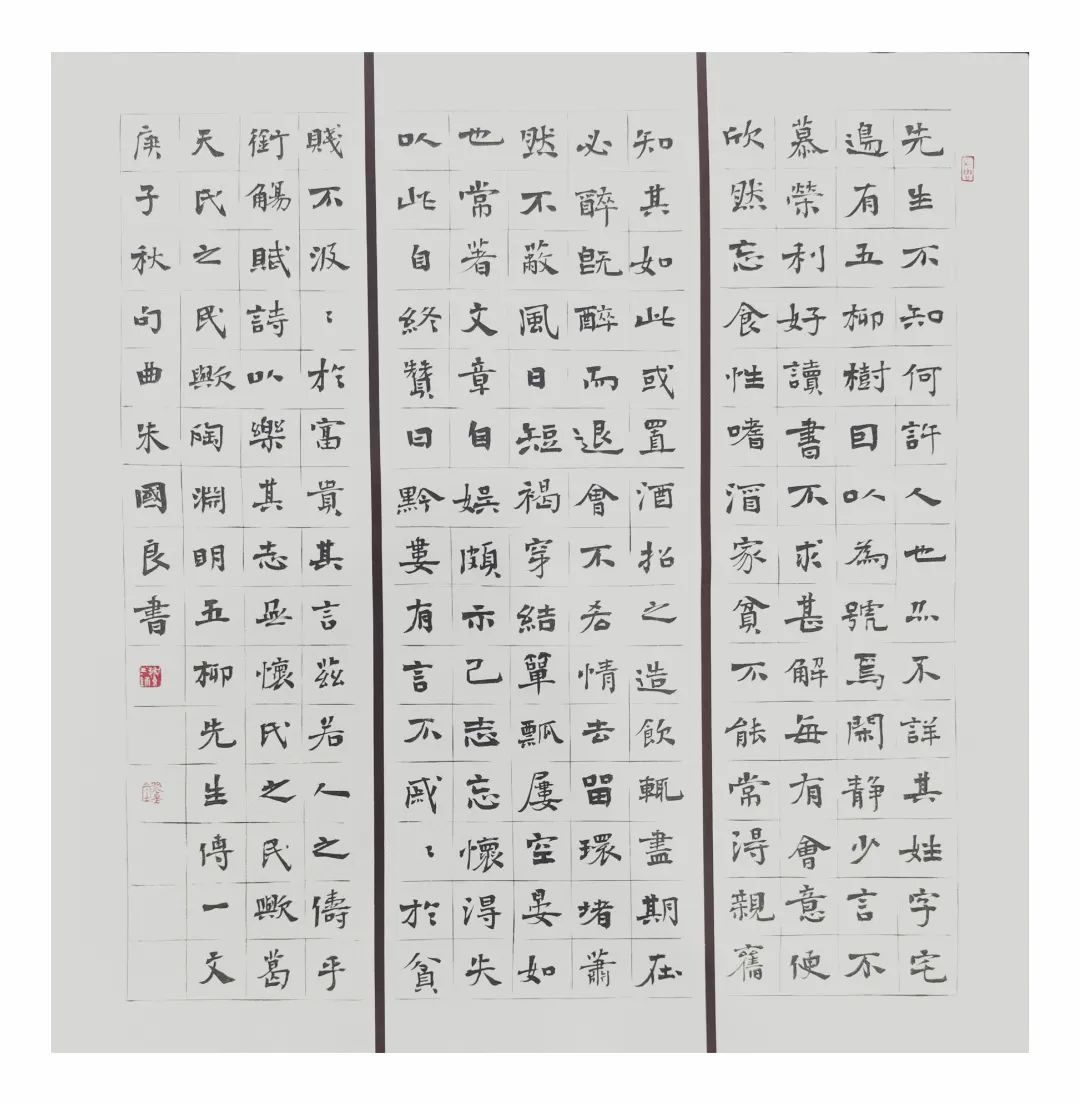 先生不知何許人也亦不詳其姓字宅
邊有五柳樹因以為號焉閑静少言不
慕榮利好讀書不求甚解每有會意便
欣然忘食性嗜酒家貧不能常得親舊
知其如此或置酒招之造飲輒盡期在
必醉既醉而退曾不吝情去留環堵蕭
然不蔽風日短褐穿結簞瓢屢空晏如
也常著文章自娛頗示己志忘懷得失
以此自終贊曰黔婁有言不戚〻於貧
賤不汲〻於富貴其言茲若人之儔乎
銜觴賦詩以樂其志無懷氏之民歟葛
天氏之民歟陶淵明五柳先生傳一文
庚子秋句曲朱國良書